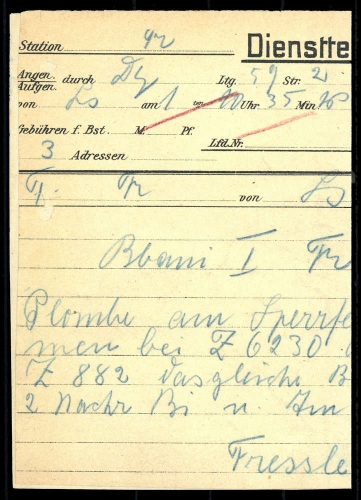 Station
Dienstte
Angen. durch Ltg. 59 Str. 2
Aufgen.
von Ls am 1 ten Uhr 35 Min.
Gebühren f. Bst. M. Pf.
3 Adressen Lfd. Nr.
von Ls
I
Plombe am Sperrfe
men bei Z 6230
Z 882 dasgleiche B
2 Nachr Bi u. Im
Fressle